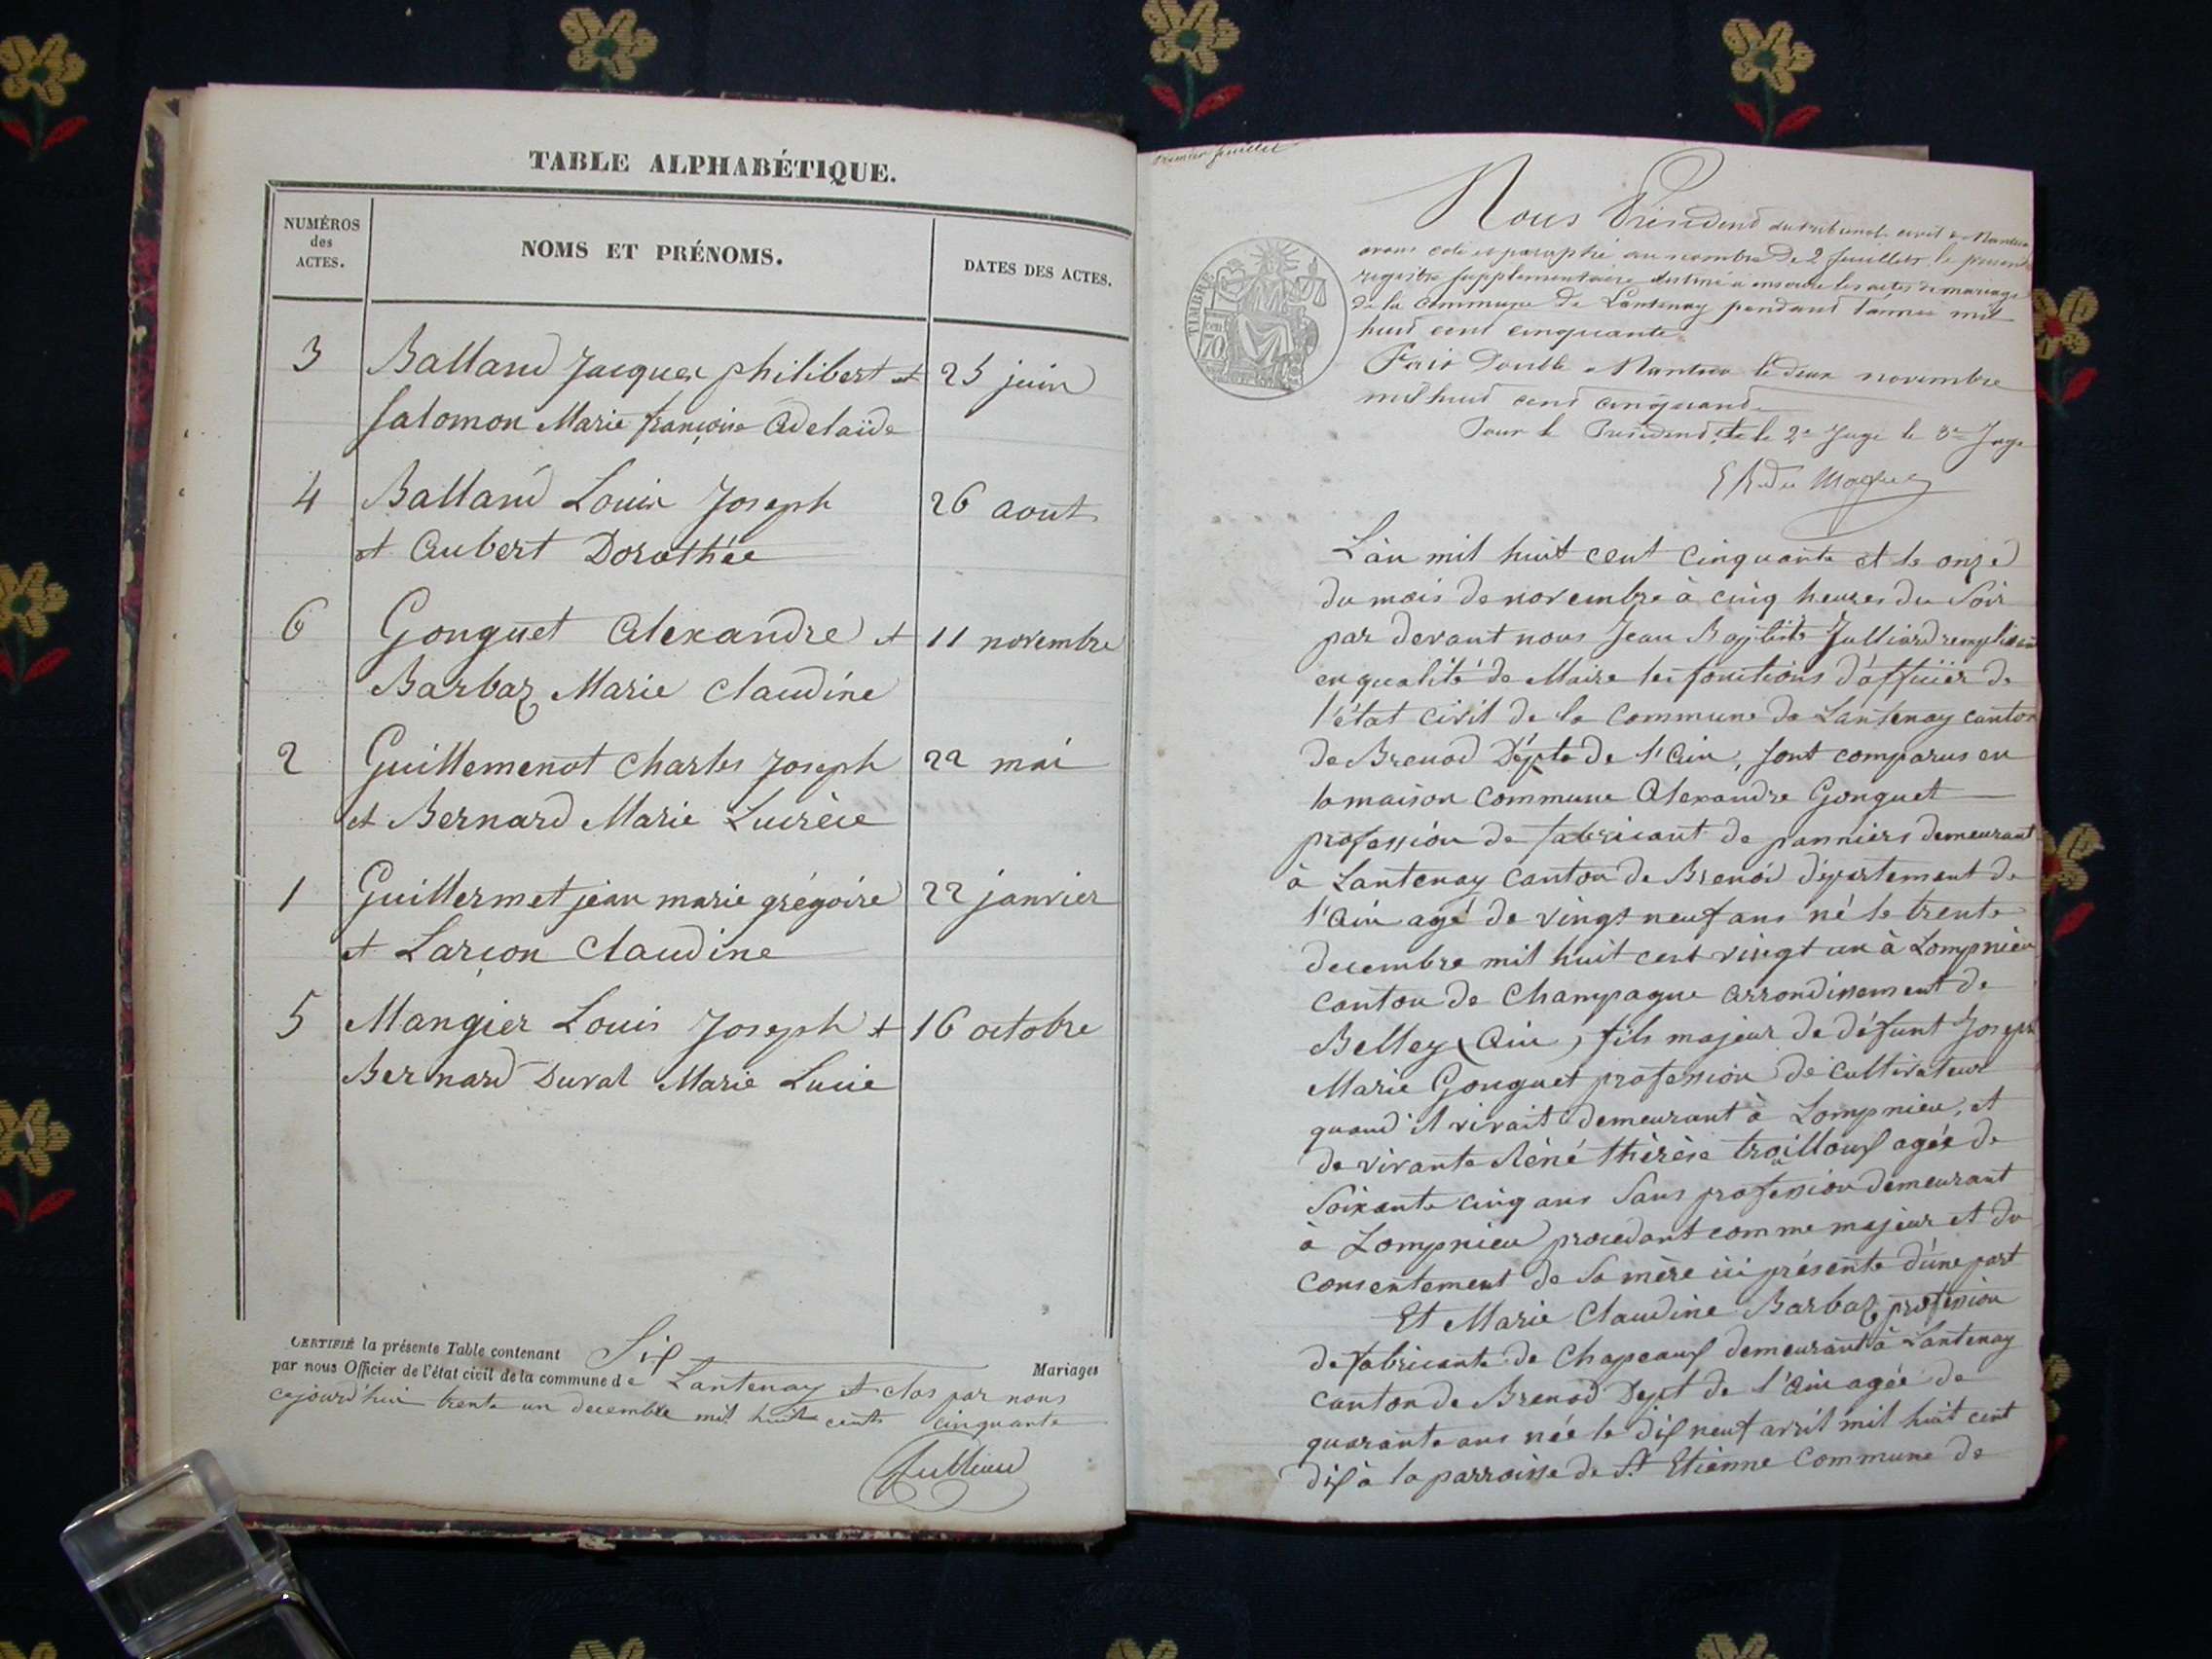 TABLE ALPHABÉTIQUE.
NUMÉROS
des
ACTES.
NOMS ET PRÉNOMS.
DATES DES ACTES.
3 Balland Jacques philibert et 25 juin
Salomon Marie françoise Adelaïde
4 Balland Louis Joseph 26 aout
et Aubert Dorothée
6 Gonguet Alexandre et 11 novembre
Barbaz Marie Claudine
2 Guillemenot Charles Joseph 22 mai
et Bernard Marie Lucrèce
1 Guillermet jean marie grégoire 22 janvier
et Larçon Claudine
5 Mangier Louis Joseph et 16 octobre
Bernard Duval Marie Lucie
CERTIFIÉ la présente Table contenant Six Mariages
par nous Officier de l'état civil de la commune de Lantenay et clos par nous
cejourd'hui trente un decembre mil huit cents cinquante
Julliard
Premier feuillet
TIMBRE
70
Nous Président du tribunal civil de Nantua
avons coté et paraphé au nombre de 2 feuillets le présent
registre supplementaire destiné à inscrire les actes de mariage
de la Commune de Lantenay pendant l'année mil
huit cent cinquante
Fait Double à Nantua le deux novembre
mil huit cent cinquante
Pour le Président, et le 2e Juge le 3e Juge
L'an mil huit cent cinquante et le onze
du mois de novembre à cinq heures du Soir
par devant nous Jean Baptiste Julliard remplissant
en qualité de Maire les fonctions d'officier de
l'état civil de la Commune de Lantenay canton
de Brenod Dépte de l'Ain, sont comparus en
la maison Commune Alexandre Gonguet
profession de fabricant de panniers demeurant
à Lantenay Canton de Brenod département de
l'Ain agé de vingt neuf ans né le trente
decembre mil huit cent vingt un à Lompnieu
canton de Champagne arrondissement de
Belley (Ain) fils majeur de défunt Joseph
Marie Gonguet profession de cultivateur
quand il vivait demeurant à Lompnieu, et
de vivante Réné thérèse trouilloux agée de
Soixante cinq ans Sans profession demeurant
à Lompnieu procedant comme majeur et du
consentement de Sa mère ici présente d'une part
Et Marie Claudine Barbaz profession
de fabricante de Chapeaux demeurant à Lantenay
canton de Brenod Dept de l'Ain agée de
quarante ans née le dix neuf avril mil huit cent
dix à la parroisse de St Etienne Commune de